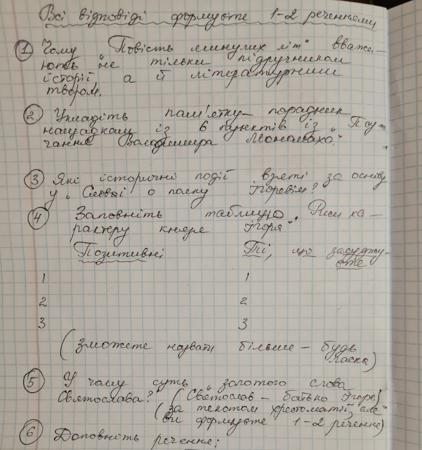 Всі відповіді формуєте 1-2 реченнями
① Чому „Повість минулих літ" вважа-
ють не тільки підручником
історії, а й літературним
твором.
② Укладіть пам'ятку-порадник
нащадкам із 6 пунктів із „Поу-
чання Володимира Мономаха".
③ Які історичні події взяті за основу
у „Слові о полку Ігоревім"?
④ Заповніть таблицю „Риси ха-
рактеру князя Ігоря".
Позитивні Ті, що засуджу-
єте
1 1
2 2
3 3
(зможете назвати більше – будь
ласка)
⑤ У чому суть „золотого слова
Святослава?" (Святослав – батько Ігоря)
(за текстом хрестоматії, але
ви формуєте 1-2 речення)
⑥ Доповніть речення: